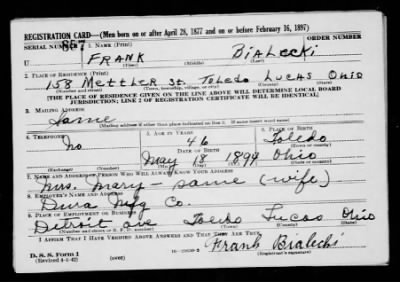 REGISTRATION CARD—(Men born on or after April 28, 1877 and on or before February 16, 1897)
SERIAL NUMBER 1. NAME (Print) ORDER NUMBER
U 857 FRANK BIALECKI
(First) (Middle) (Last)
2. PLACE OF RESIDENCE (Print)
158 Mettler St. Toledo Lucas Ohio
(Number and street) (Town, township, village, or city) (County) (State)
[THE PLACE OF RESIDENCE GIVEN ON THE LINE ABOVE WILL DETERMINE LOCAL BOARD
JURISDICTION; LINE 2 OF REGISTRATION CERTIFICATE WILL BE IDENTICAL]
3. MAILING ADDRESS
Same
(Mailing address if other than place indicated on line 2. If same insert word same)
4. TELEPHONE 5. AGE IN YEARS 6. PLACE OF BIRTH
No 46 Toledo
DATE OF BIRTH (Town or county)
May 18 1894 Ohio
(Exchange) (Number) (Mo.) (Day) (Yr.) (State or country)
7. NAME AND ADDRESS OF PERSON WHO WILL ALWAYS KNOW YOUR ADDRESS
Mrs. Mary - same (wife)
8. EMPLOYER'S NAME AND ADDRESS
Dura Mfg Co.
9. PLACE OF EMPLOYMENT OR BUSINESS
Detroit ave Toledo Lucas Ohio
(Number and street or R. F. D. number) (Town) (County) (State)
I AFFIRM THAT I HAVE VERIFIED ABOVE ANSWERS AND THAT THEY ARE TRUE.
D. S. S. Form 1
(Revised 4-1-42) (over) Frank Bialecki